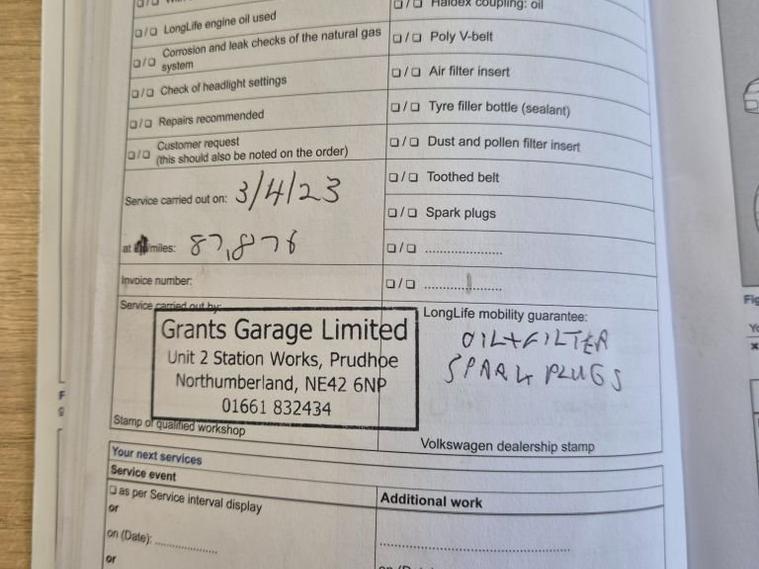 Haldex coupling: oil
LongLife engine oil used
Corrosion and leak checks of the natural gas
system
Check of headlight settings
Repairs recommended
Customer request
(this should also be noted on the order)
Service carried out on: 3/4/23
at miles: 87,876
Invoice number:
Service carried out by:
Grants Garage Limited
Unit 2 Station Works, Prudhoe
Northumberland, NE42 6NP
01661 832434
Stamp of qualified workshop
Poly V-belt
Air filter insert
Tyre filler bottle (sealant)
Dust and pollen filter insert
Toothed belt
Spark plugs
LongLife mobility guarantee:
OIL+FILTER
SPARK PLUGS
Volkswagen dealership stamp
Your next services
Service event
as per Service interval display
or
on (Date):
or
Additional work